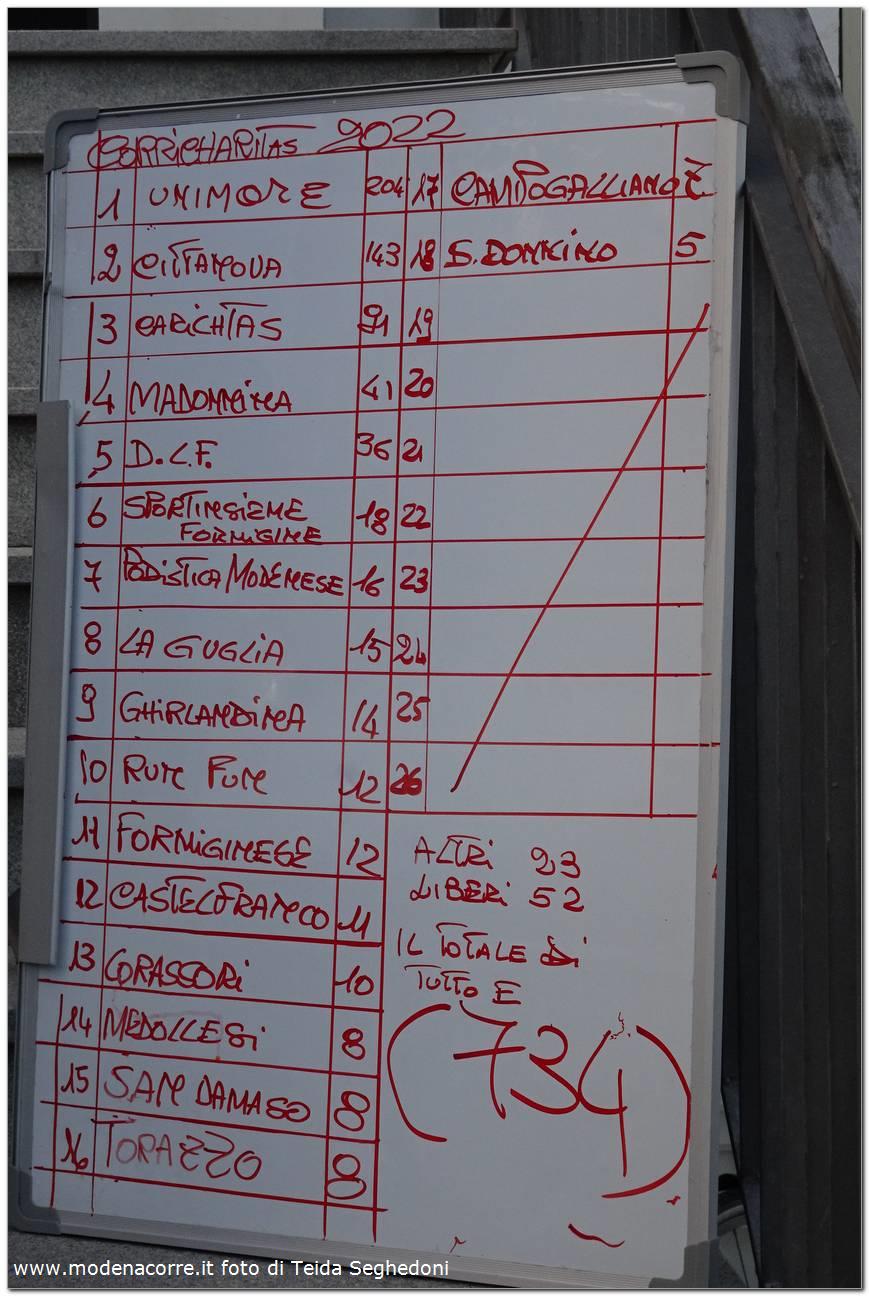 CORRICHARITAS 2022
1 UNIMORE 204
2 CITTANOVA 143
3 CARICHTAS 91
4 MADONNINA 41
5 D.L.F. 36
6 SPORTINSIEME FORMIGINE 18
7 PODISTICA MODENESE 16
8 LA GUGLIA 15
9 GHIRLANDINA 14
10 RUN FUN 12
11 FORMIGINESE 12
12 CASTELFRANCO 11
13 CORASSORI 10
14 MEDOLLESI 8
15 SAN DAMASO 8
16 TORAZZO 8
17 CAMPOGALLIANO 7
18 S. DONNINO 5
19
20
21
22
23
24
25
26
ALTRI 23
LIBERI 52
IL TOTALE DI
TUTTO E
(734)
www.modenacorre.it foto di Teida Seghedoni